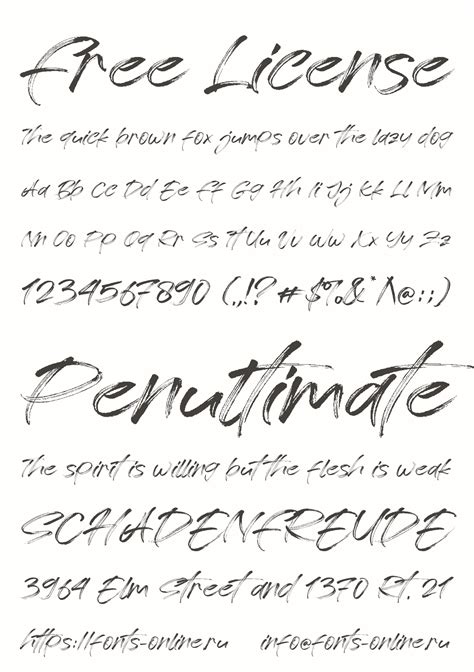 Free License
The quick brown fox jumps over the lazy dog
Aa Bb Cc Dd Ee Ff Gg Hh Ii Jj Kk Ll Mm
Nn Oo Pp Qq Rr Ss Tt Uu Vv Ww Xx Yy Zz
1234567890 (.,!? # $%&*/\@:;)
Penultimate
The spirit is willing but the flesh is weak
SCHADENFREUDE
3964 Elm Street and 1370 Rt. 21
https://fonts-online.ru info@fonts-online.ru